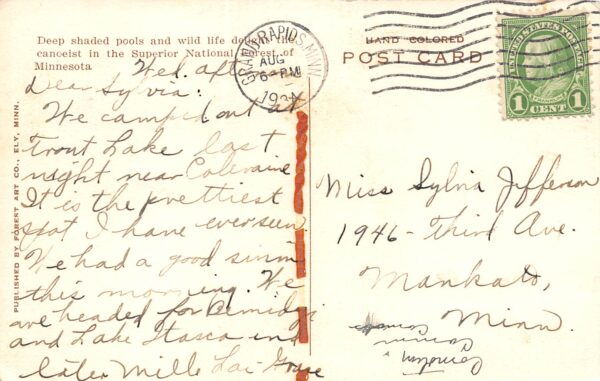 Deep shaded pools and wild life delight the
canoeist in the Superior National Forest of
Minnesota
Wed. afternoon
Dear Sylvia:
We camped out at
Trout Lake last
night near Coleraine
It is the prettiest
spot I have ever seen.
We had a good swim
this morning. We
are headed for Bemidji
and Lake Itasca and
later Mille Lac
PUBLISHED BY FOREST ART CO., ELY, MINN.
GRAND RAPIDS, MINN.
AUG
6-PM
HAND COLORED
POST CARD
UNITED STATES POSTAGE
1 CENT 1
Miss Sylvia Jefferson
1946 - Third Ave.
Mankato,
Minn.